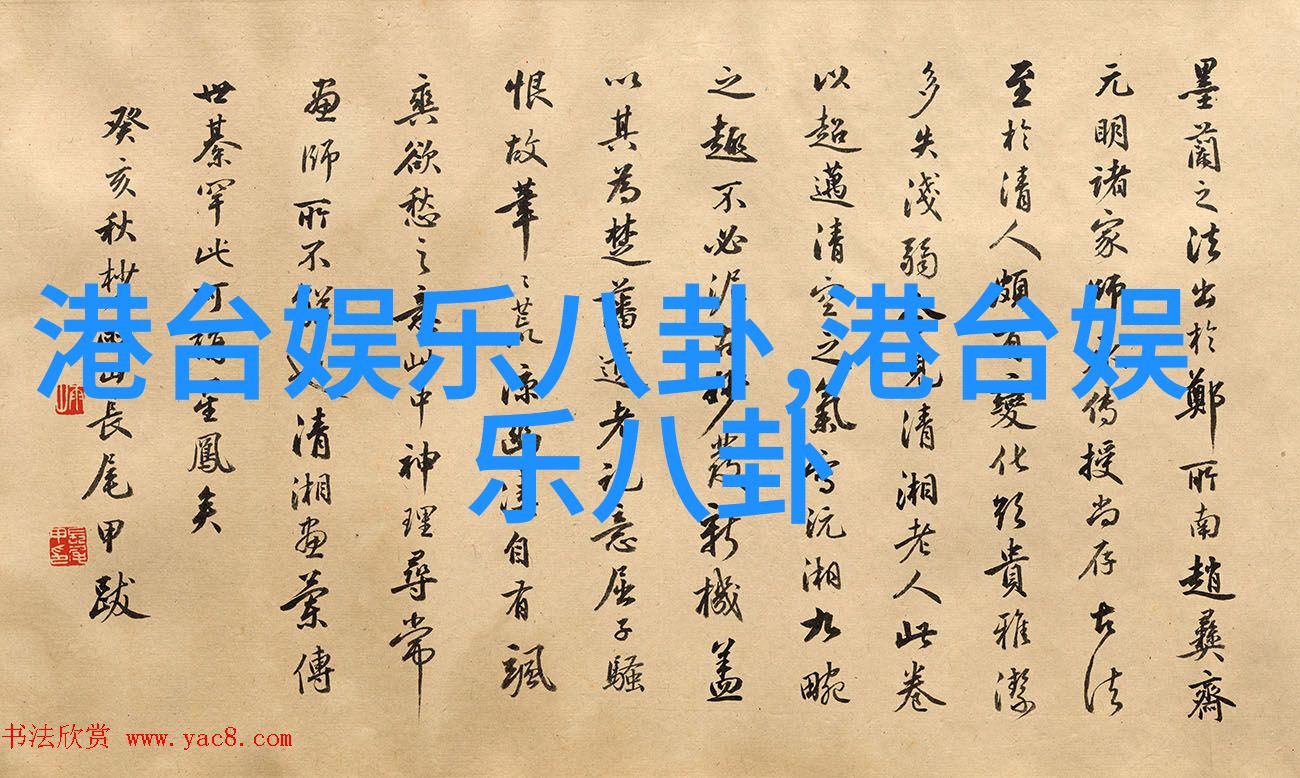 墨蘭之法出於鄭所南趙彝齋
元明諸家師傳授尚存古法
至於清人頗有變化貴雅潔
多失淺弱今見清湘老人此卷
以超邁清空之氣寫沅湘九畹
之趣不必泥古發新機蓋
以其為楚藩遺老託意屈子騷
恨故筆〻荒涼幽自有颯
爽欲愁之意此中神理尋常
畫師所不清湘畫蘭傳
世綦罕此可稱星鳳矣
癸亥秋杪山長尾甲跋
港台娱乐八卦,港台娱
乐八卦
书法欣赏 www.yac8.com